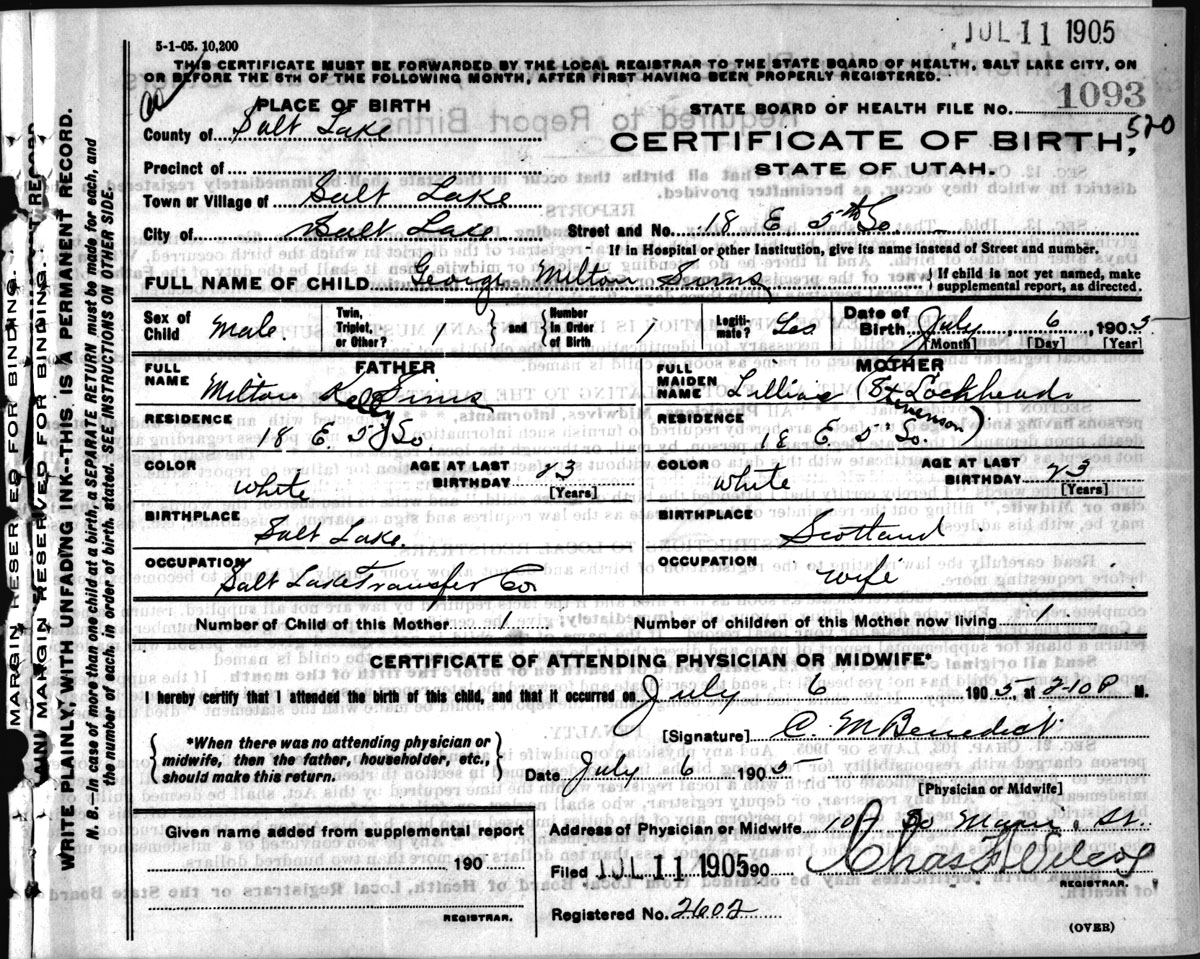 JUL 11 1905
5-1-05. 10,200
THIS CERTIFICATE MUST BE FORWARDED BY THE LOCAL REGISTRAR TO THE STATE BOARD OF HEALTH, SALT LAKE CITY, ON
OR BEFORE THE 5TH OF THE FOLLOWING MONTH, AFTER FIRST HAVING BEEN PROPERLY REGISTERED.
PLACE OF BIRTH
STATE BOARD OF HEALTH FILE No. 1093
County of Salt Lake
CERTIFICATE OF BIRTH, 520
Precinct of
STATE OF UTAH.
Town or Village of Salt Lake
City of Salt Lake Street and No. 18 E 5th So.
If in Hospital or other Institution, give its name instead of Street and number.
FULL NAME OF CHILD George Milton Sims { If child is not yet named, make
supplemental report, as directed.
Sex of Child Male Twin, Triplet, or Other? 1 } and { Number in Order of Birth 1 Legiti-mate? Yes Date of Birth July 6 1905
[Month] [Day] [Year]
FATHER
MOTHER
FULL NAME Milton Kelly Sims
FULL MAIDEN NAME Lillian (Stevenson) Lockhead
RESIDENCE 18 E. 5" So.
RESIDENCE 18 E. 5" So.
COLOR White AGE AT LAST BIRTHDAY 23 [Years]
COLOR White AGE AT LAST BIRTHDAY 23 [Years]
BIRTHPLACE Salt Lake.
BIRTHPLACE Scotland
OCCUPATION Salt Lake Transfer Co
OCCUPATION Wife
Number of Child of this Mother 1 Number of children of this Mother now living 1
CERTIFICATE OF ATTENDING PHYSICIAN OR MIDWIFE*
I hereby certify that I attended the birth of this child, and that it occurred on July 6 1905, at 2 10 P M.
{ *When there was no attending physician or
midwife, then the father, householder, etc.,
should make this return. }
[Signature] C. M Benedict
Date July 6 1905
[Physician or Midwife]
Given name added from supplemental report
190
REGISTRAR.
Address of Physician or Midwife So Main St.
Filed JUL 11 1905 90 Chas
REGISTRAR.
Registered No. 2602
(OVER)
MARGIN RESERVED FOR BINDING.
MARGIN RESERVED FOR BINDING.
WRITE PLAINLY, WITH UNFADING INK--THIS IS A PERMANENT RECORD.
N. B.—In case of more than one child at a birth, a SEPARATE RETURN must be made for each, and
the number of each, in order of birth, stated. SEE INSTRUCTIONS ON OTHER SIDE.